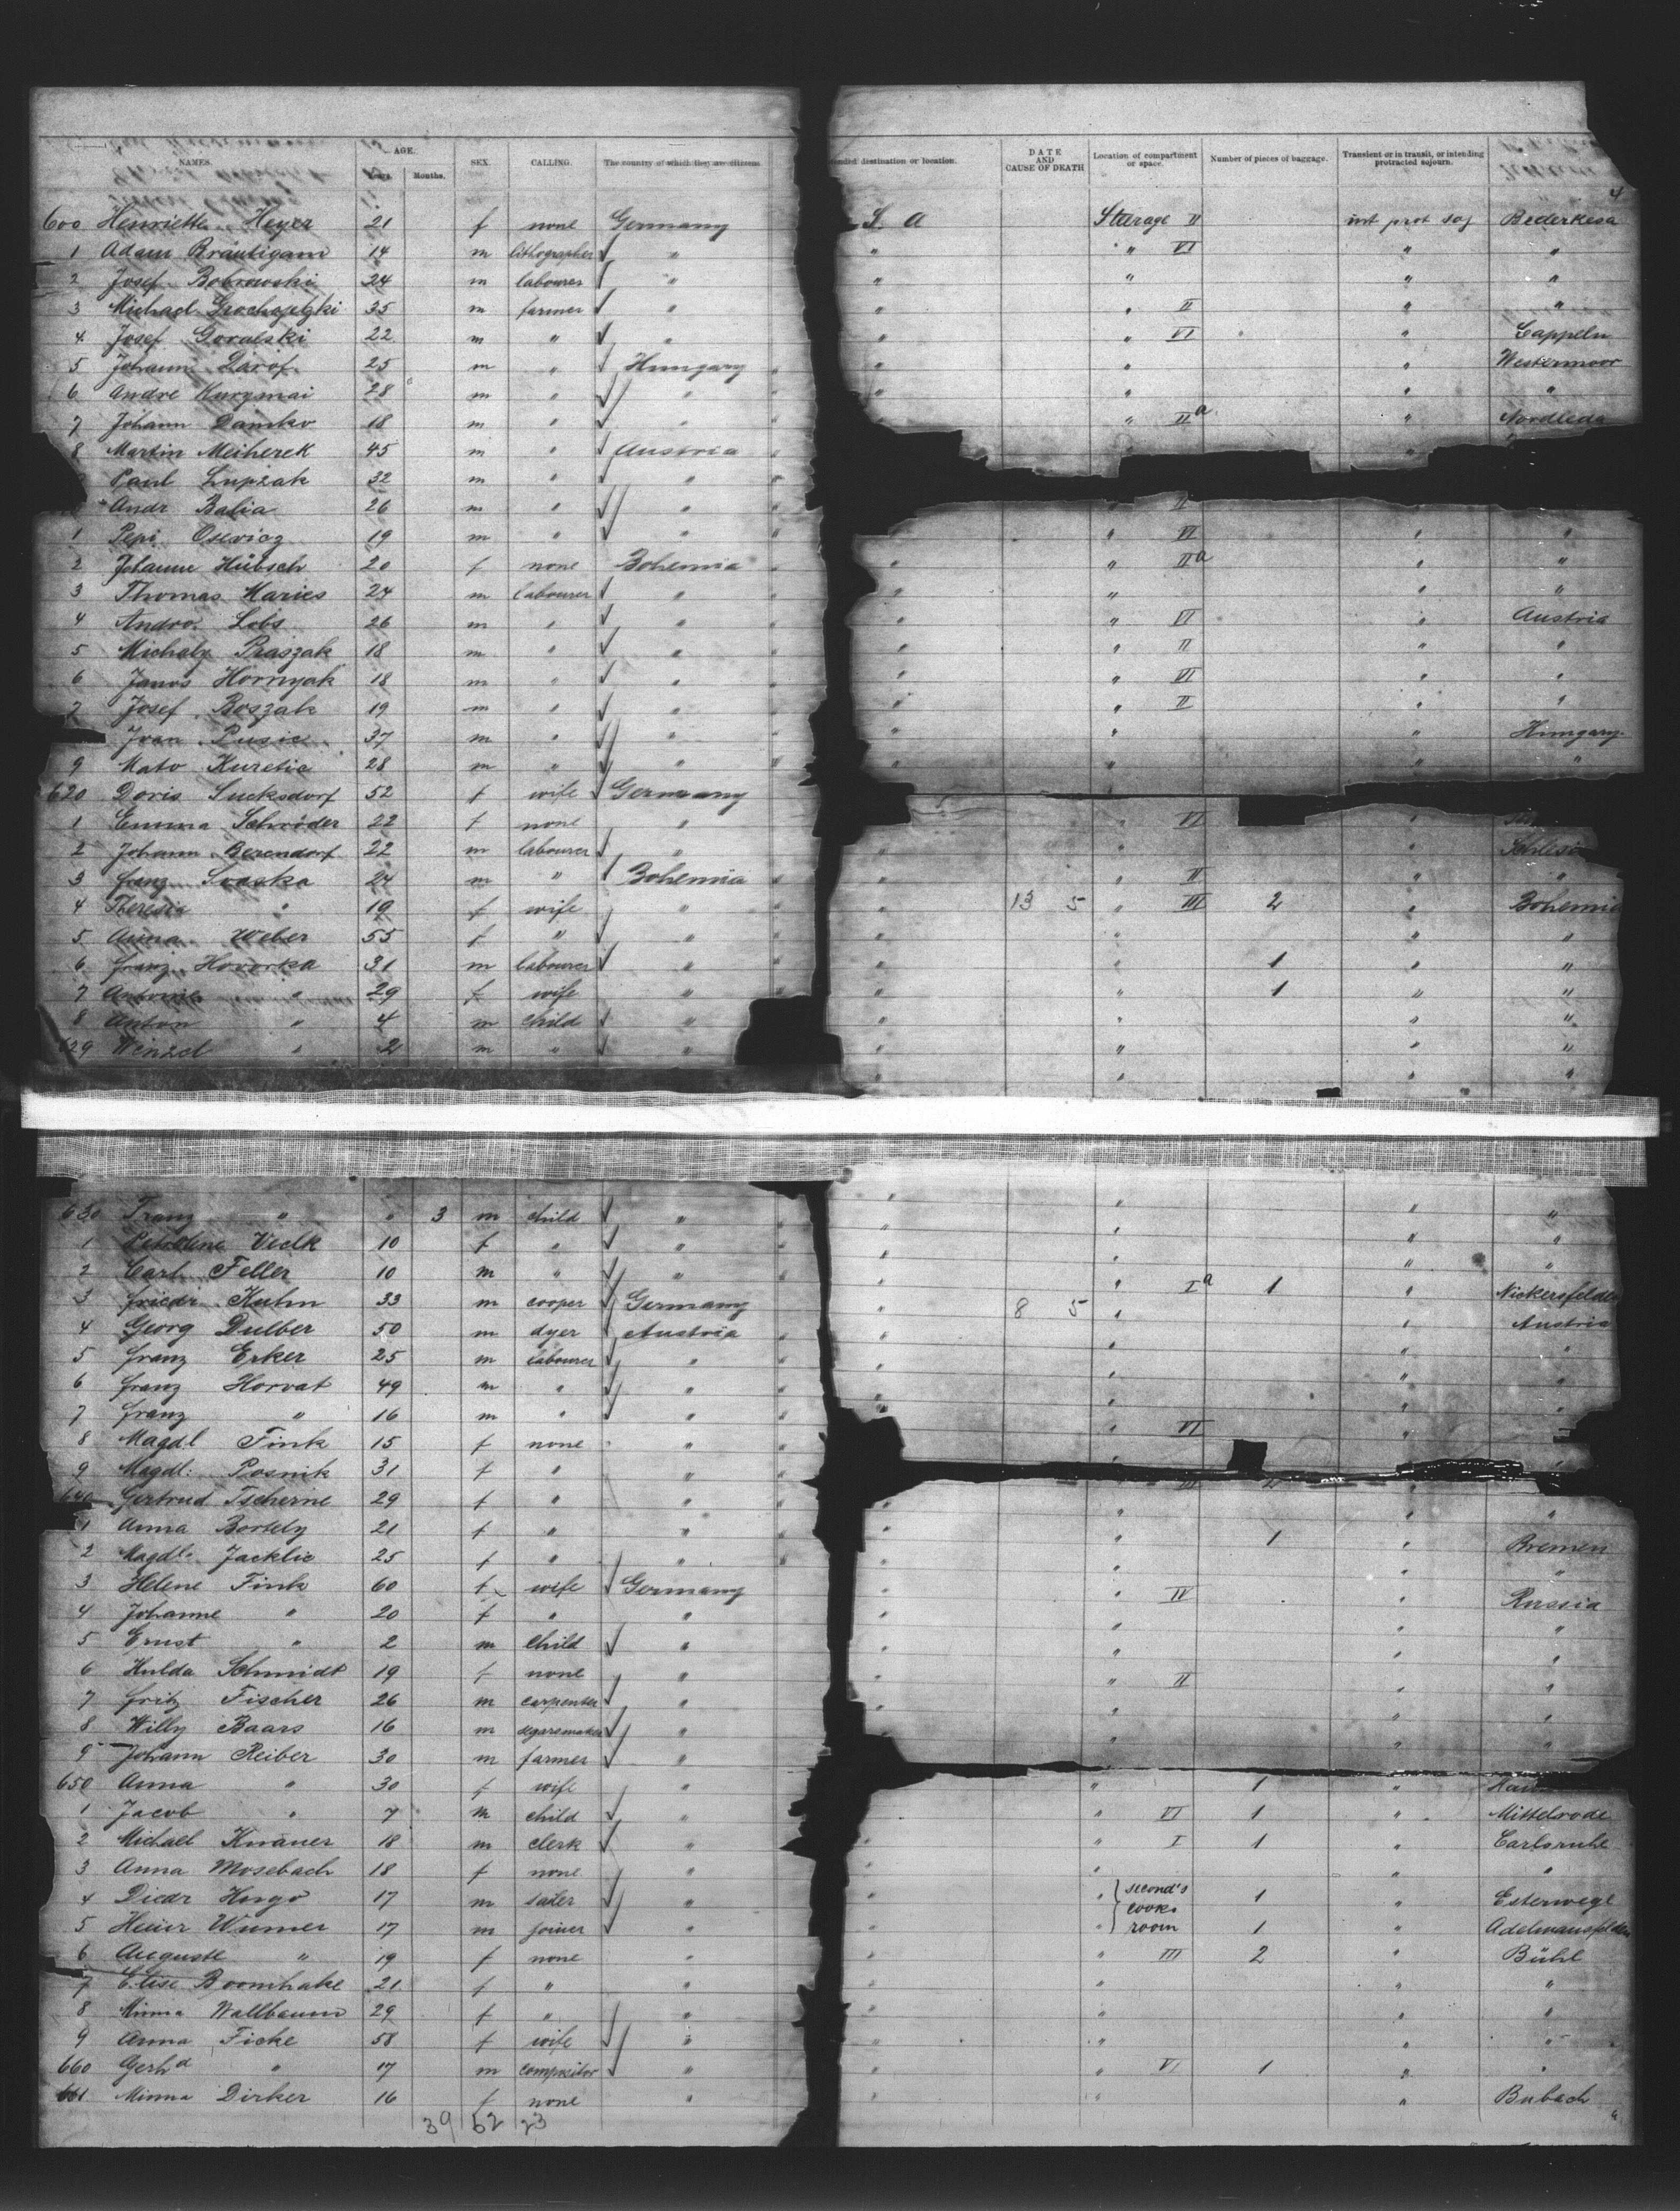 NAMES. AGE. Years. Months. SEX. CALLING. The country of which they are citizens.
600 Henriette Heyer 21 f none Germany
1 Adam Bräutigam 14 m lithographer "
2 Josef Bobrowski 24 m labourer "
3 Michael 35 m farmer "
4 Josef Goralski 22 m " "
5 Johann Darof 25 m " Hungary "
6 Andre Kurymai 28 m " " "
7 Johann Danko 18 m " " "
8 Martin Meiherek 45 m " Austria "
Paul Lupzak 32 m " " "
Andr Balia 26 m " " "
1 Pepi Osevicz 19 m " " "
2 Johanne Hübsch 20 f none Bohemia "
3 Thomas Maries 24 m labourer " "
4 Andro Lobs 26 m " " "
5 Michaly Praszak 18 m " " "
6 Janos Hornyak 18 m " " "
7 Josef Boszak 19 m " " "
Ivan Pusic 37 m " " "
9 Mato Kuretic 28 m " " "
620 Doris Sucksdorf 52 f wife Germany
1 Emma Schröder 22 f none "
2 Johann Berendorf 22 m labourer "
3 Franz Svaska 24 m " Bohemia "
4 Theresia " 19 f wife " "
5 Anna Weber 55 f " " "
6 Franz Hovorka 31 m labourer " "
7 Antonie " 29 f wife " "
8 Anton " 4 m child "
629 Wenzel " 2 m " "
630 Franz " " 3 m child "
1 Petroline Vcelk 10 f " " "
2 Carl Feller 10 m " "
3 Friedr. Kuhn 33 m cooper Germany
4 Georg Dulber 50 m dyer Austria "
5 Franz Erker 25 m labourer " "
6 Franz Horvat 49 m " " "
7 Franz " 16 m " " "
8 Magdl Fink 15 f none " "
9 Magdl: Posnik 31 f " " "
640 Gertrud Tscherne 29 f " " "
1 Anna Bortely 21 f " " "
2 Magdl. Jacklic 25 f " " "
3 Helene Fink 60 f wife Germany
4 Johanne " 20 f " "
5 Ernst " 2 m child "
6 Hulda Schmidt 19 f none "
7 Fritz Fischer 26 m carpenter "
8 Willy Baars 16 m segarsmaker "
9 Johann Reiber 30 m farmer "
650 Anna " 30 f wife "
1 Jacob " 7 m child "
2 Michael Knauer 18 m clerk "
3 Anna Mosebach 18 f none "
4 Diedr 17 m "
5 Heinr 17 m joiner "
6 Auguste " 19 f none "
7 Elise Boomhake 21 f " "
8 Minna Wallbaum 29 f " "
9 Anna Ficke 58 f wife "
660 Gerhd " 17 m compositor "
661. Minna Dirker 16 f none "
39 62 23
destination or location. DATE AND CAUSE OF DEATH Location of compartment or space. Number of pieces of baggage. Transient or in transit, or intending protracted sojourn.
4
S. A Steerage II int prot soj Bederkesa
" " VI " "
" " " "
" " II " "
" " VI " Cappeln
" " " Westermoor
" " " "
" IIa " Nordleda
II
" VI " "
" " IIa " "
" " " "
" " VI " Austria
" " II " "
" " VI " "
" " II " "
" " " Hungary
" " " "
" VI "
" " "
" " II " "
" 13 5 " III 2 " Bohemia
" " " "
" " 1 " "
" " 1 " "
" " " "
" " " "
" " " "
" " " "
" " " "
" " " "
" " Ia 1 " Nickersfelden
" 8 5 " " Austria
" " " "
" " " "
" " " "
" VI "
III 2 "
" " " "
" " 1 " Bremen
" " " "
" " IV " Russia
" " " "
" " " "
" " II " "
" " " "
" " "
" 1 "
" VI 1 " Mittelrode
" " I 1 " Carlsruhe
" " " "
" " second's 1 " Esterwege
cooks
" " room 1 " Adelmansfelden
" " III 2 " Bühl
" " " "
" " " "
" " " "
" " VI 1 " "
" " " Bubach